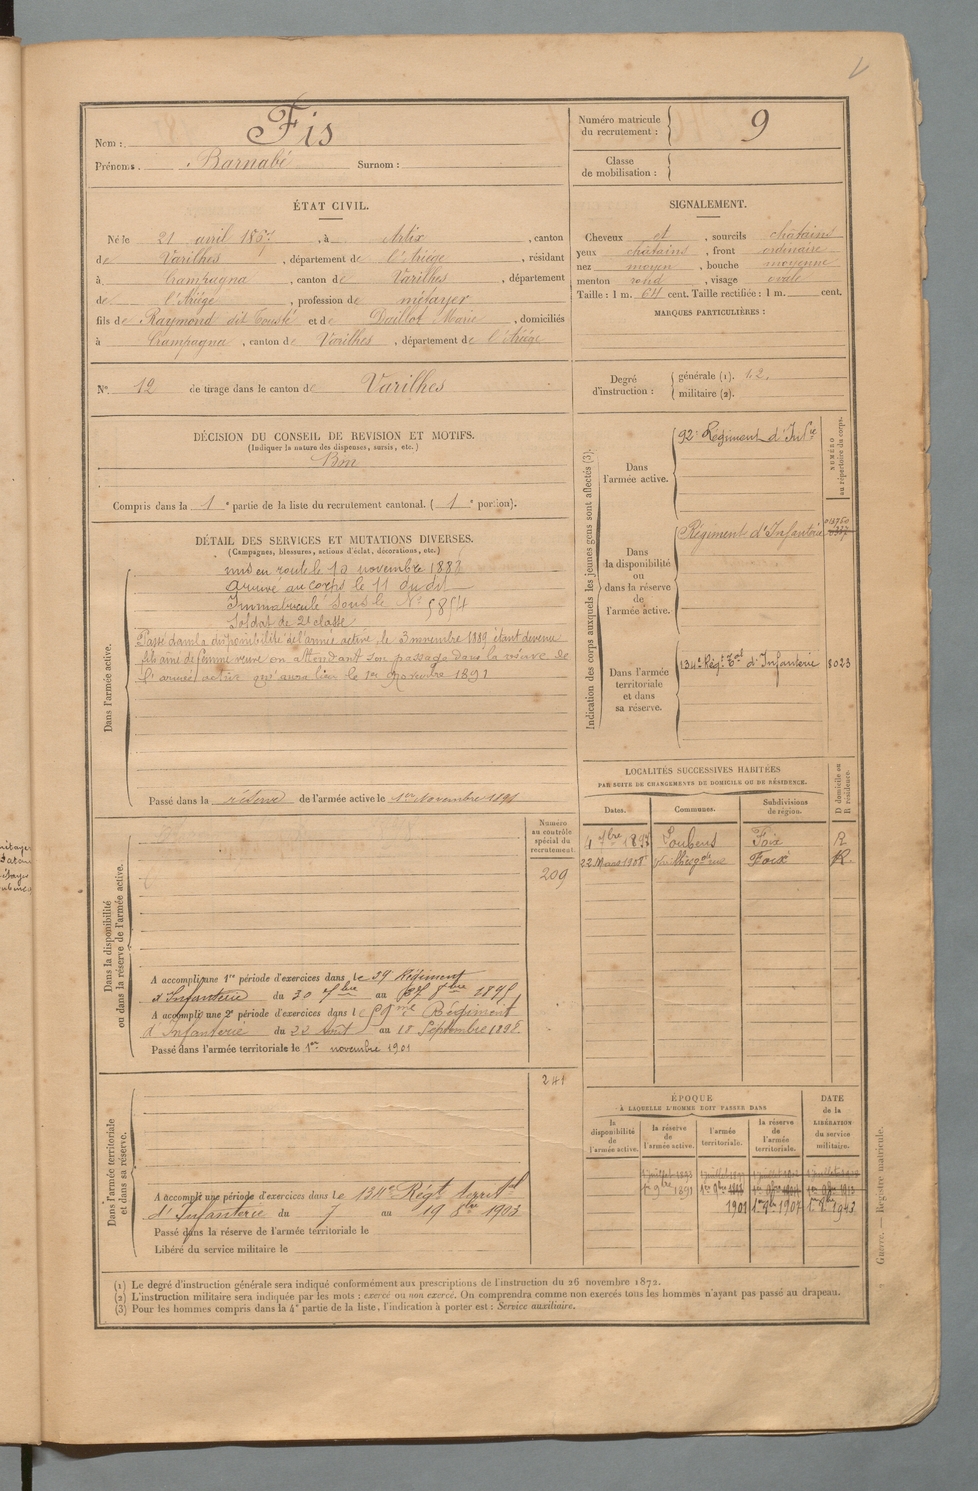 Nom : Fis
Prénoms. Barnabé Surnom :
Numéro matricule du recrutement : 9
Classe de mobilisation :
ÉTAT CIVIL.
Né le 21 avril 1867, à Artix, canton
de Varilhes, département de l'Ariège, résidant
à Crampagna, canton de Varilhes, département
de l'Ariège, profession de métayer
fils de Raymond dit Tousté et de Daillot Marie, domiciliés
à Crampagna, canton de Varilhes, département de l'Ariège
SIGNALEMENT.
Cheveux et, sourcils châtains
yeux châtains, front ordinaire
nez moyen, bouche moyenne
menton rond, visage ovale
Taille : 1 m. 64 cent. Taille rectifiée : 1 m. cent.
MARQUES PARTICULIÈRES :
N° 12 de tirage dans le canton de Varilhes
Degré d'instruction : générale (1). 1.2.
militaire (2).
DÉCISION DU CONSEIL DE REVISION ET MOTIFS.
(Indiquer la nature des dispenses, sursis, etc.)
Bon
Compris dans la 1e partie de la liste du recrutement cantonal. ( 1e portion).
DÉTAIL DES SERVICES ET MUTATIONS DIVERSES.
(Campagnes, blessures, actions d'éclat, décorations, etc.)
Dans l'armée active.
mis en route le 10 novembre 1888
arrivé au corps le 11 dudit
Immatriculé sous le N° 5854
Soldat de 2e classe
Passé dans la disponibilité de l'armée active, le 3 novembre 1889, étant devenu
fils aîné de femme veuve en attendant son passage dans la réserve de
l'armée active qui aura lieu le 1er novembre 1891
Passé dans la réserve de l'armée active le 1er Novembre 1891
Indication des corps auxquels les jeunes gens sont affectés (3).
NUMÉRO au répertoire du corps.
Dans l'armée active.
92e Régiment d'Infie
Dans la disponibilité ou dans la réserve de l'armée active.
Régiment d'Infanterie
Dans l'armée territoriale et dans sa réserve.
134e Régt Tal d'Infanterie 8023
LOCALITÉS SUCCESSIVES HABITÉES
PAR SUITE DE CHANGEMENTS DE DOMICILE OU DE RÉSIDENCE.
Dates. Communes. Subdivisions de région. D domicile ou R résidence.
4 7bre 1893 Loubens Foix R
22 Mars 1908 Foix R.
Dans la disponibilité ou dans la réserve de l'armée active.
Numéro au contrôle spécial du recrutement.
209
A accompli une 1re période d'exercices dans le 59 Régiment
d'Infanterie du 30 7bre au 27 8bre 1895
A accompli une 2e période d'exercices dans le 59me Régiment
d'Infanterie du 22 Aout au 18 Septembre 1898
Passé dans l'armée territoriale le 1er novembre 1901
Dans l'armée territoriale et dans sa réserve.
241
A accompli une période d'exercices dans le 134e Régt territal
d'Infanterie du 7 au 19 8bre 1903
Passé dans la réserve de l'armée territoriale le
Libéré du service militaire le
ÉPOQUE
A LAQUELLE L'HOMME DOIT PASSER DANS
la disponibilité de l'armée active. la réserve de l'armée active. l'armée territoriale. la réserve de l'armée territoriale.
DATE de la LIBÉRATION du service militaire.
1er 9bre 1891
1901 1er 9bre 1907 1er 9bre 1913
Guerre. — Registre matricule.
(1) Le degré d'instruction générale sera indiqué conformément aux prescriptions de l'instruction du 26 novembre 1872.
(2) L'instruction militaire sera indiquée par les mots : exercé ou non exercé. On comprendra comme non exercés tous les hommes n'ayant pas passé au drapeau.
(3) Pour les hommes compris dans la 4e partie de la liste, l'indication à porter est : Service auxiliaire.